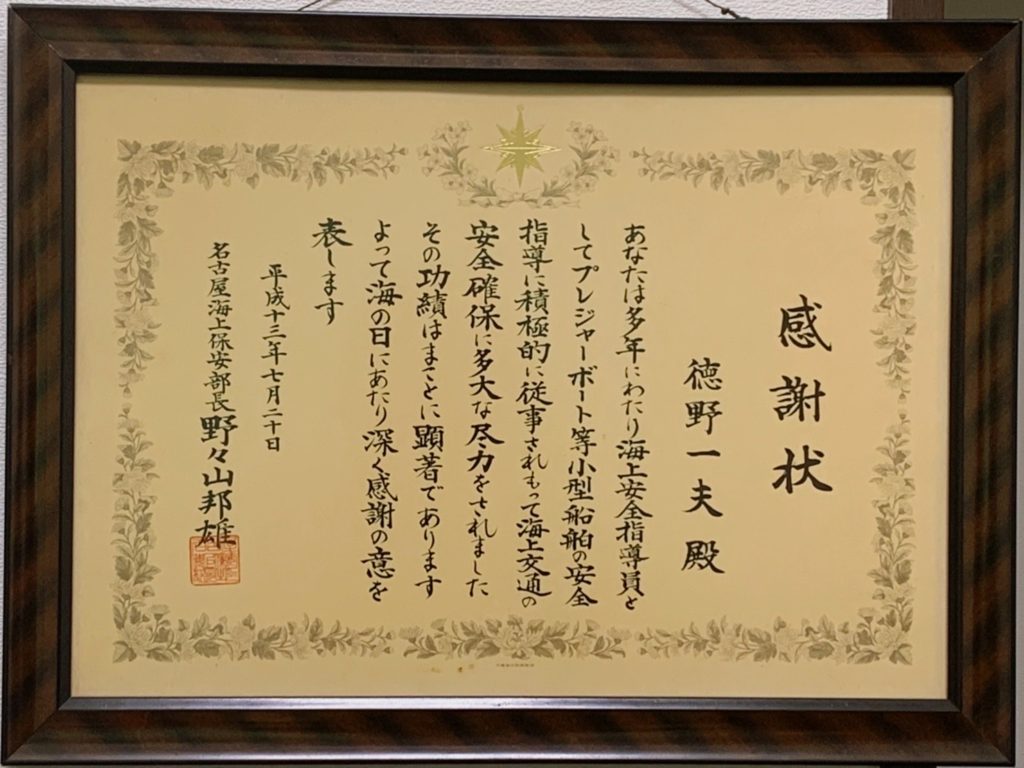 感謝状
徳野一夫殿
あなたは多年にわたり海上安全指導員と
してプレジャーボート等小型船舶の安全
指導に積極的に従事されもって海上交通の
安全確保に多大な尽力をされました
その功績はまことに顕著であります
よって海の日にあたり深く感謝の意を
表します
平成十三年七月二十日
名古屋海上保安部長 野々山邦雄